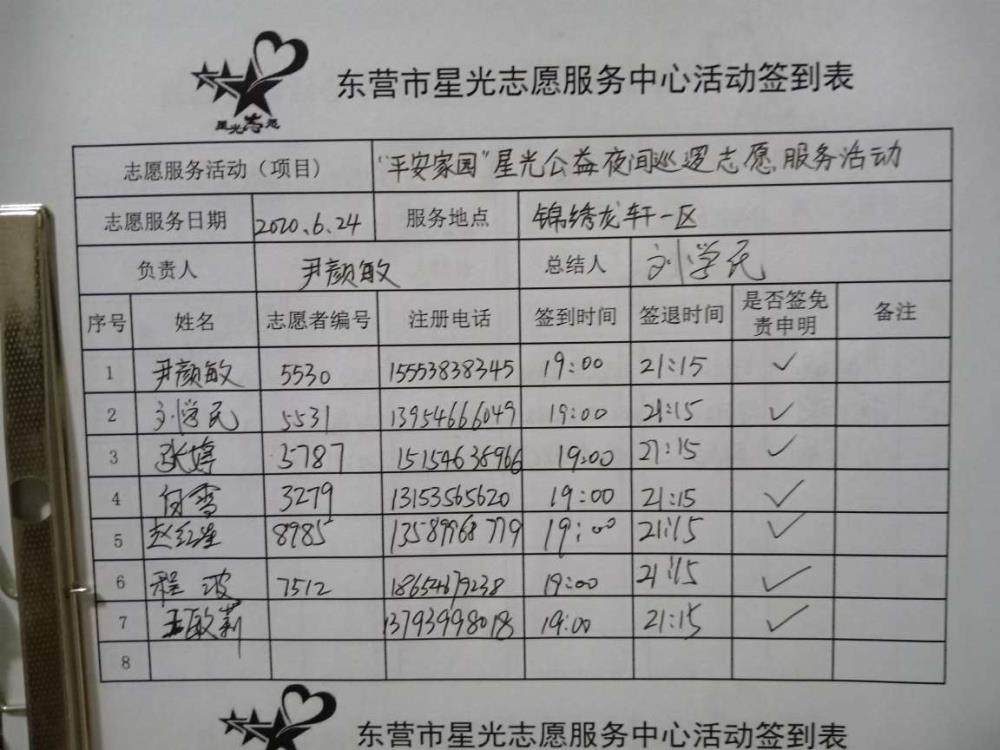 星光志愿
东营市星光志愿服务中心活动签到表
志愿服务活动（项目） "平安家园"星光公益夜间巡逻志愿服务活动
志愿服务日期 2020.6.24 服务地点 锦绣龙轩一区
负责人 尹颜敏 总结人 刘学民
序号 姓名 志愿者编号 注册电话 签到时间 签退时间 是否签免责申明 备注
1 尹颜敏 5530 15553838345 19:00 21:15 ✓
2 刘学民 5531 13954666049 19:00 21:15 ✓
3 张婷 5787 15154636966 19:00 21:15 ✓
4 白雪 3279 13153565620 19:00 21:15 ✓
5 赵红 8985 13589968779 19:00 21:15 ✓
6 程波 7512 18654679238 19:00 21:15 ✓
7 王敏莉 13793998018 19:00 21:15 ✓
8
东营市星光志愿服务中心活动签到表